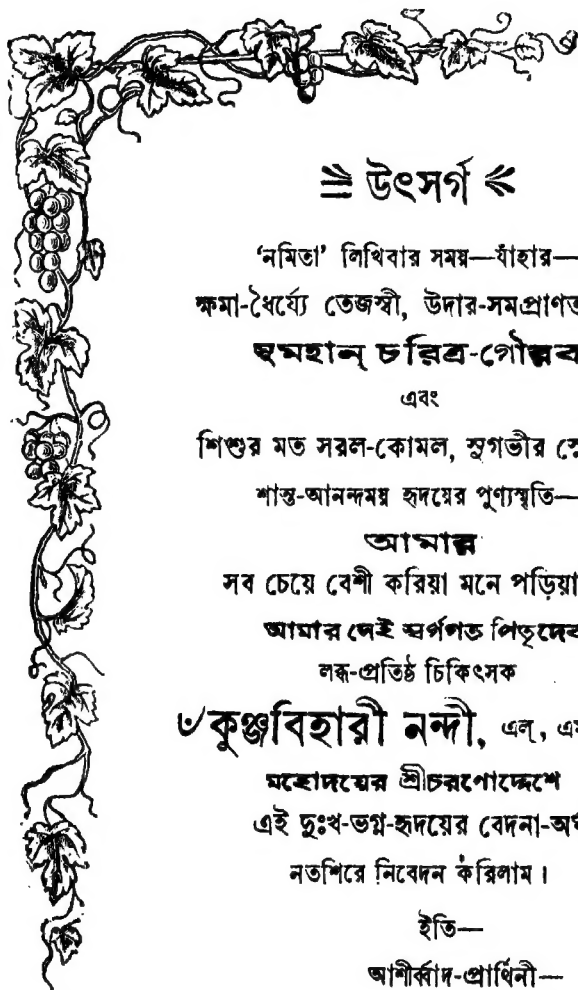 উৎসর্গ
‘নমিতা’ লিখিবার সময়—যাঁহার—
ক্ষমা-ধৈর্য্যে তেজস্বী, উদার-সমপ্রাণত
সুমহান্ চরিত্র-গৌরব
এবং
শিশুর মত সরল-কোমল, সুগভীর স্নে
শান্ত-আনন্দময় হৃদয়ের পুণ্যস্মৃতি—
আমার
সব চেয়ে বেশী করিয়া মনে পড়িয়া
আমার সেই স্বর্গগত পিতৃদেব
লব্ধ-প্রতিষ্ঠ চিকিৎসক
৺কুঞ্জবিহারী নন্দী, এল্, এম
মহোদয়ের শ্রীচরণোদ্দেশে
এই দুঃখ-ভগ্ন-হৃদয়ের বেদনা-অর্ঘ
নতশিরে নিবেদন করিলাম।
ইতি—
আশীর্ব্বাদ-প্রার্থিনী—